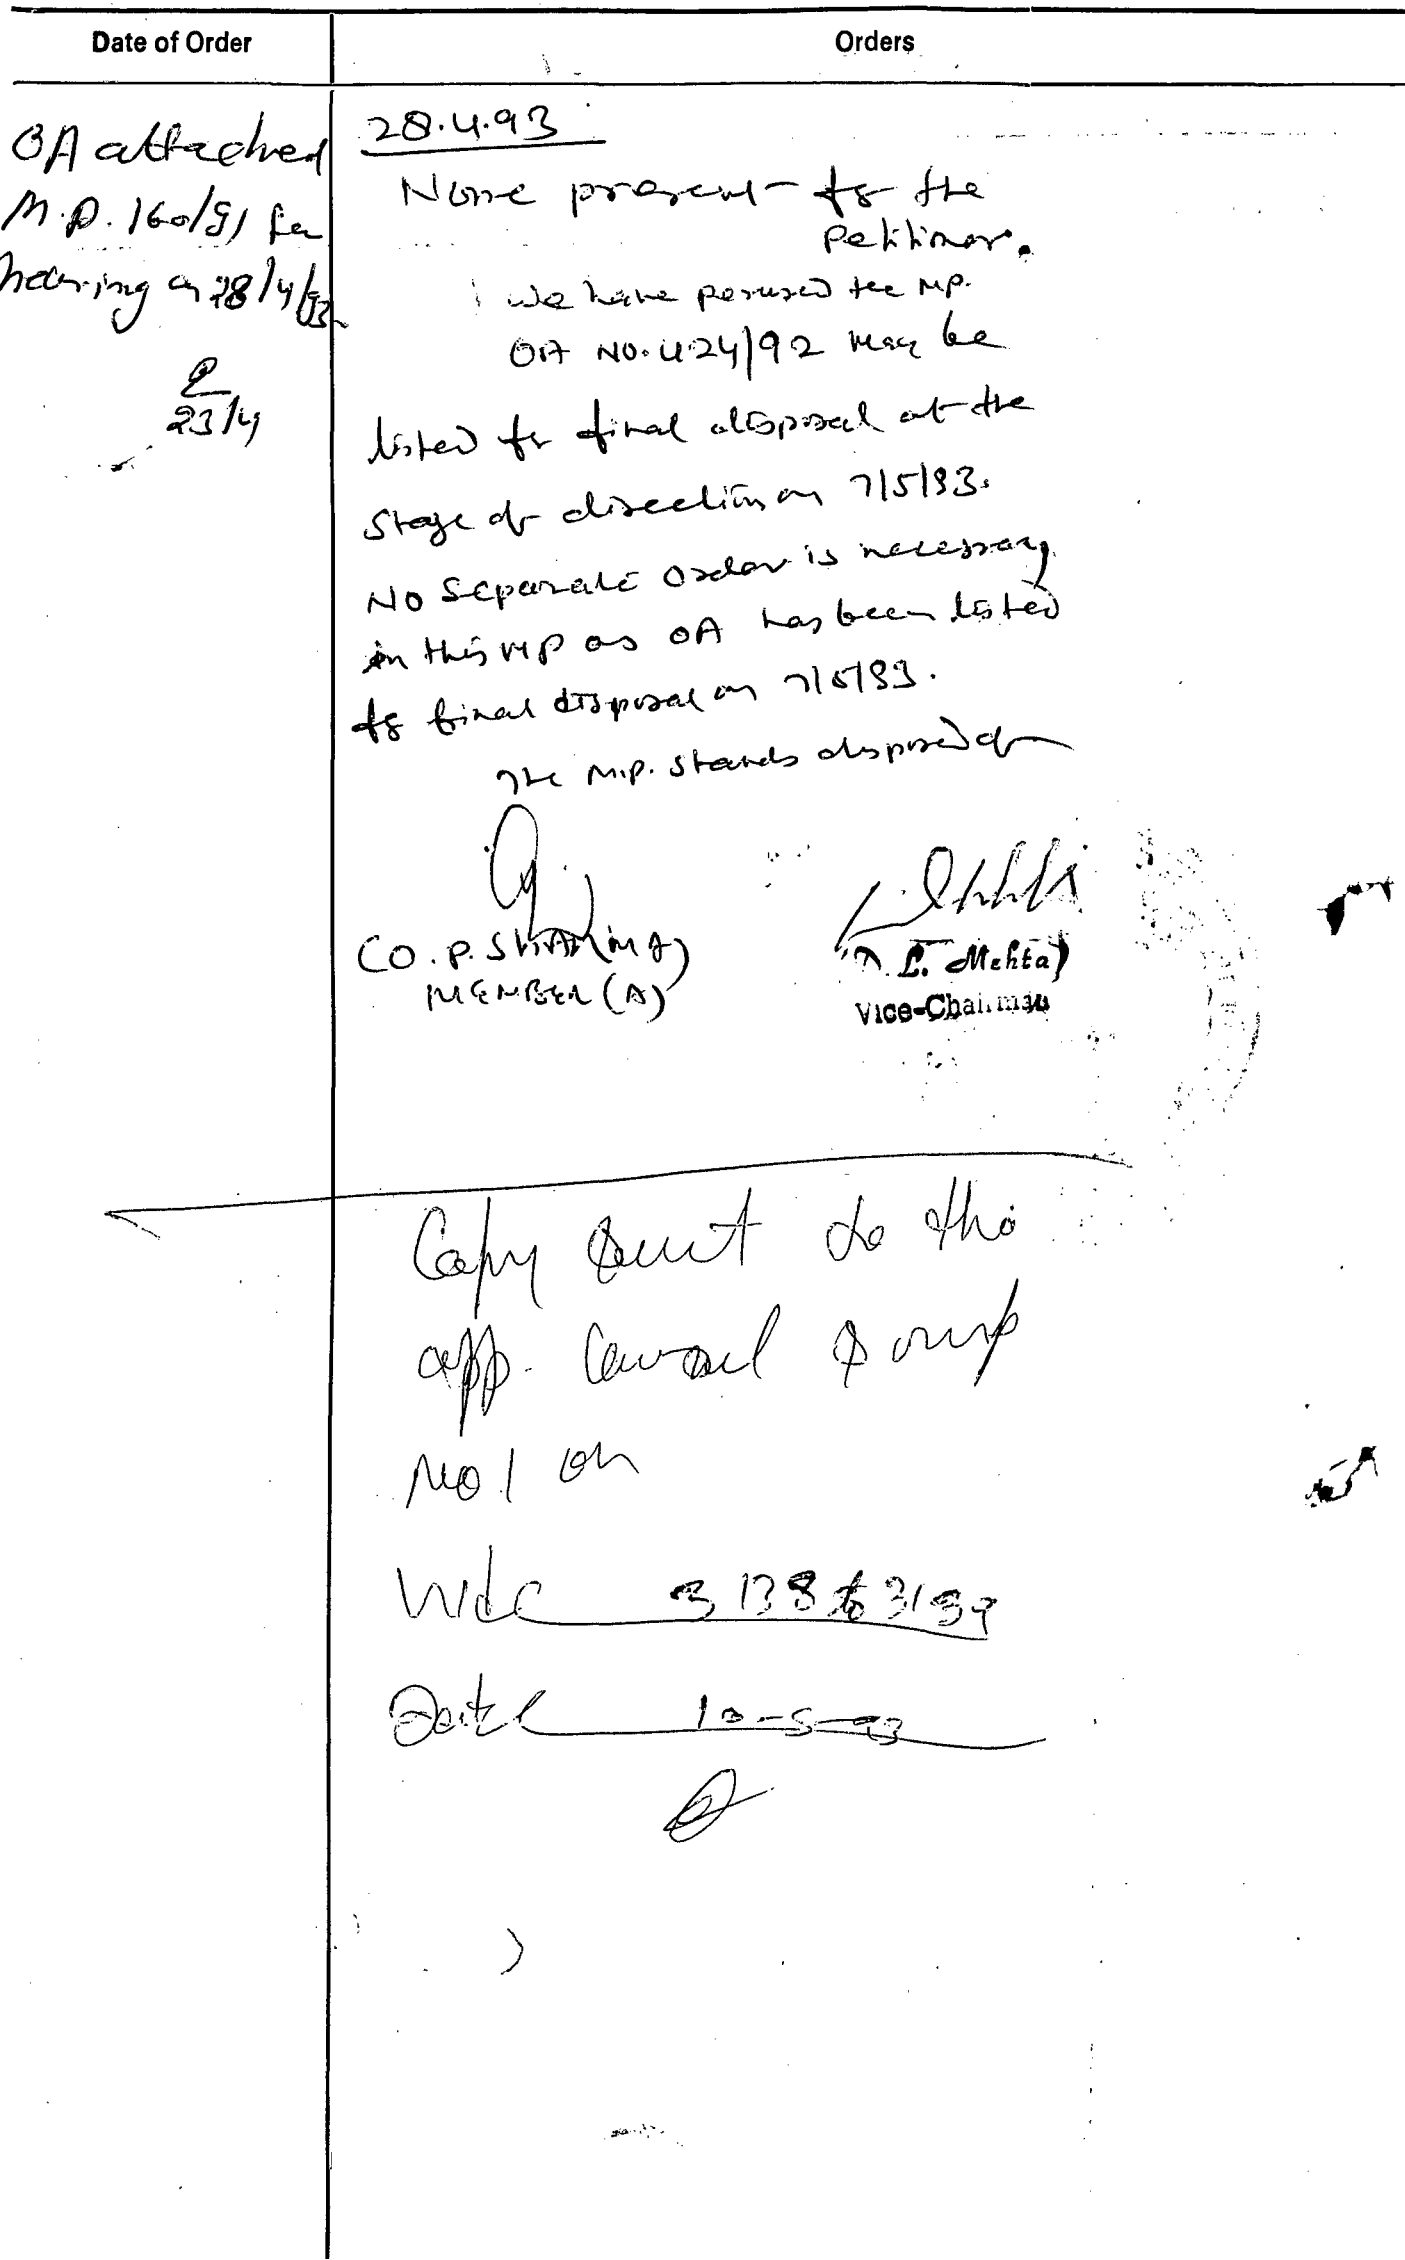 Date of Order
Orders
OA attached
M.P. 160/91 for
hearing on 28/4/93
23/4
28.4.93
None present for the
Petitioner.
We have perused the MP.
OA NO. 424/92 may be
listed for final disposal at the
stage of direction on 7/5/93.
No separate order is necessary
in this MP as OA has been listed
for final disposal on 7/5/93.
The M.P. stands disposed of
(O.P. SHARMA)
MEMBER (A)
L. Mehta)
Vice-Chairman
Copy sent to the
app. Counsel &
No 1 on
Vide 3138 to 3139
Date 10-5-93